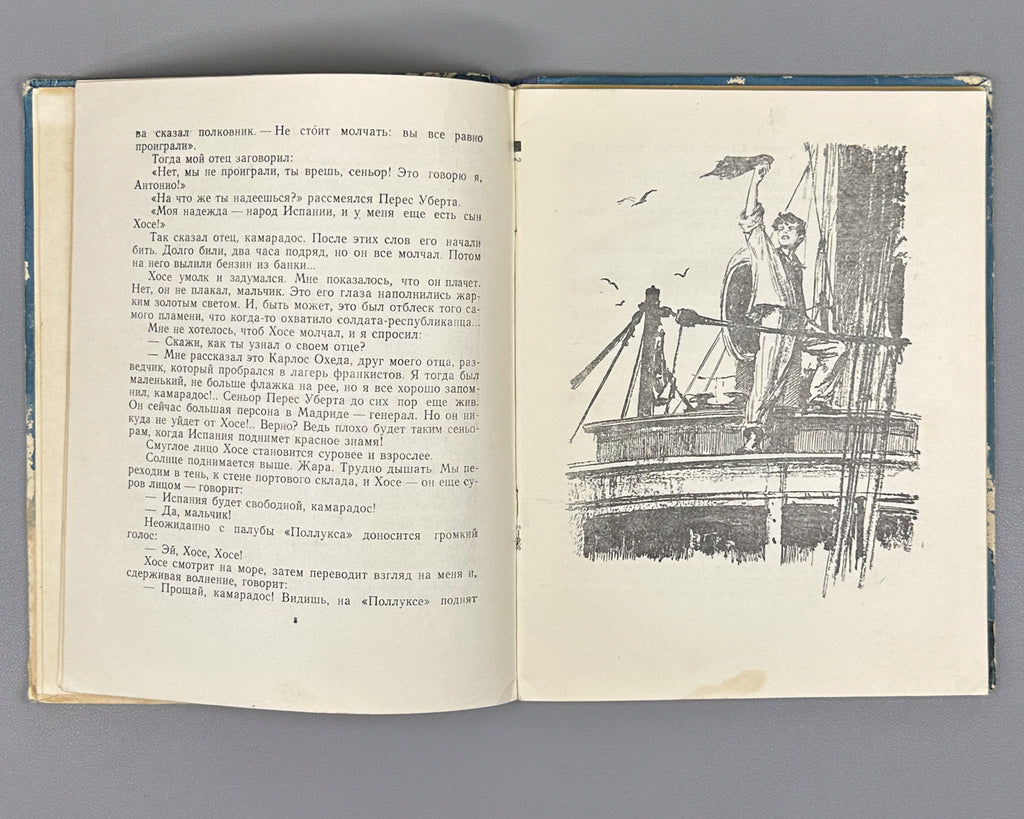 ва сказал полковник. — Не сто́ит молчать: вы все равно
проиграли».
Тогда мой отец заговорил:
«Нет, мы не проиграли, ты врешь, сеньор! Это говорю я,
Антонио!»
«На что же ты надеешься?» рассмеялся Перес Уберта.
«Моя надежда — народ Испании, и у меня еще есть сын
Хосе!»
Так сказал отец, камарадос. После этих слов его начали
бить. Долго били, два часа подряд, но он все молчал. Потом
на него вылили бензин из банки...
Хосе умолк и задумался. Мне показалось, что он плачет.
Нет, он не плакал, мальчик. Это его глаза наполнились жар-
ким золотым светом. И, быть может, это был отблеск того са-
мого пламени, что когда-то охватило солдата-республиканца...
Мне не хотелось, чтоб Хосе молчал, и я спросил:
— Скажи, как ты узнал о своем отце?
— Мне рассказал это Карлос Охеда, друг моего отца, раз-
ведчик, который пробрался в лагерь франкистов. Я тогда был
маленький, не больше флажка на рее, но я все хорошо запом-
нил, камарадос!.. Сеньор Перес Уберта до сих пор еще жив.
Он сейчас большая персона в Мадриде — генерал. Но он ни-
куда не уйдет от Хосе!.. Верно? Ведь плохо будет таким сеньо-
рам, когда Испания поднимет красное знамя!
Смуглое лицо Хосе становится суровее и взрослее.
Солнце поднимается выше. Жара. Трудно дышать. Мы пе-
реходим в тень, к стене портового склада, и Хосе — он еще су-
ров лицом — говорит:
— Испания будет свободной, камарадос!
— Да, мальчик!
Неожиданно с палубы «Поллукса» доносится громкий
голос:
— Эй, Хосе, Хосе!
Хосе смотрит на море, затем переводит взгляд на меня и,
сдерживая волнение, говорит:
— Прощай, камарадос! Видишь, на «Поллуксе» поднят
8